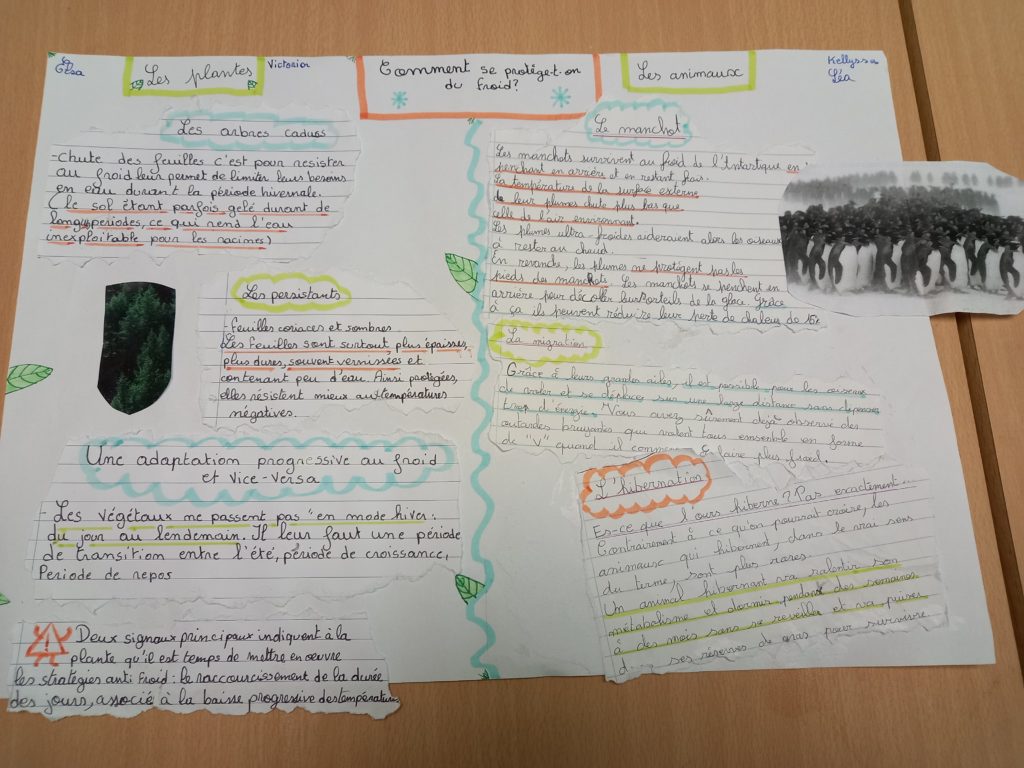 Elsa
Les plantes
Victoria
Comment se protège-t-on
du froid?
Les animaux
Kellyssa
Léa
Les arbres caducs
- Chute des feuilles c'est pour resister
au froid leur permet de limiter leurs besoins
en eau durant la période hivernale.
( le sol étant parfois gelé durant de
longs periodes, ce qui rend l'eau
inexploitable pour les racines)
Les persistants
- Feuilles coriaces et sombres
Les feuilles sont surtout plus épaisses,
plus dures, souvent vernissées et
contenant peu d'eau. Ainsi protégées,
elles résistent mieux aux températures
négatives.
Une adaptation progressive au froid
et Vice-Versa
- Les végétaux ne passent pas "en mode hiver:
du jour au lendemain. Il leur faut une période
de transition entre l'été, période de croissance,
Periode de repos
Deux signaux principaux indiquent à la
plante qu'il est temps de mettre en oeuvre
les stratégies anti froid: le raccourcissement de la durée
des jours, associé à la baisse progressive des températures
Le manchot
Les manchots survivent au froid de l'Antartique en
penchant en arrière et en restant frais.
La température de la surface externe
de leur plumes chute plus bas que
celle de l'air environnant.
Les plumes ultra-froides aideraient alors les oiseaux
à rester au chaud.
En revanche, les plumes ne protègent pas les
pieds des manchots. Les manchots se penchent en
arrière pour décoller leurs orteils de la glace. Grâce
à ça ils peuvent réduire leur perte de chaleur de
La migration
Grâce à leurs grandes ailes, il est possible pour les oiseaux
de voler et se déplacer sur une large distance sans dépenser
trop d'énergie. Vous avez sûrement dejà observé des
outardes bruyantes qui volent tous ensemble en forme
de "V" quand il commence à faire plus froid.
L'hibernation
Es-ce que l'ours hiberne? Pas exactement...
Contrairement à ce qu'on pourrait croire, les
animaux qui hibernent, dans le vrai sens
du terme, sont plus rares.
Un animal hibernant va ralentir son
métabolisme et dormir pendant des semaines
à des mois sans se reveiller et va puiser
ses réserves de gras pour survivre